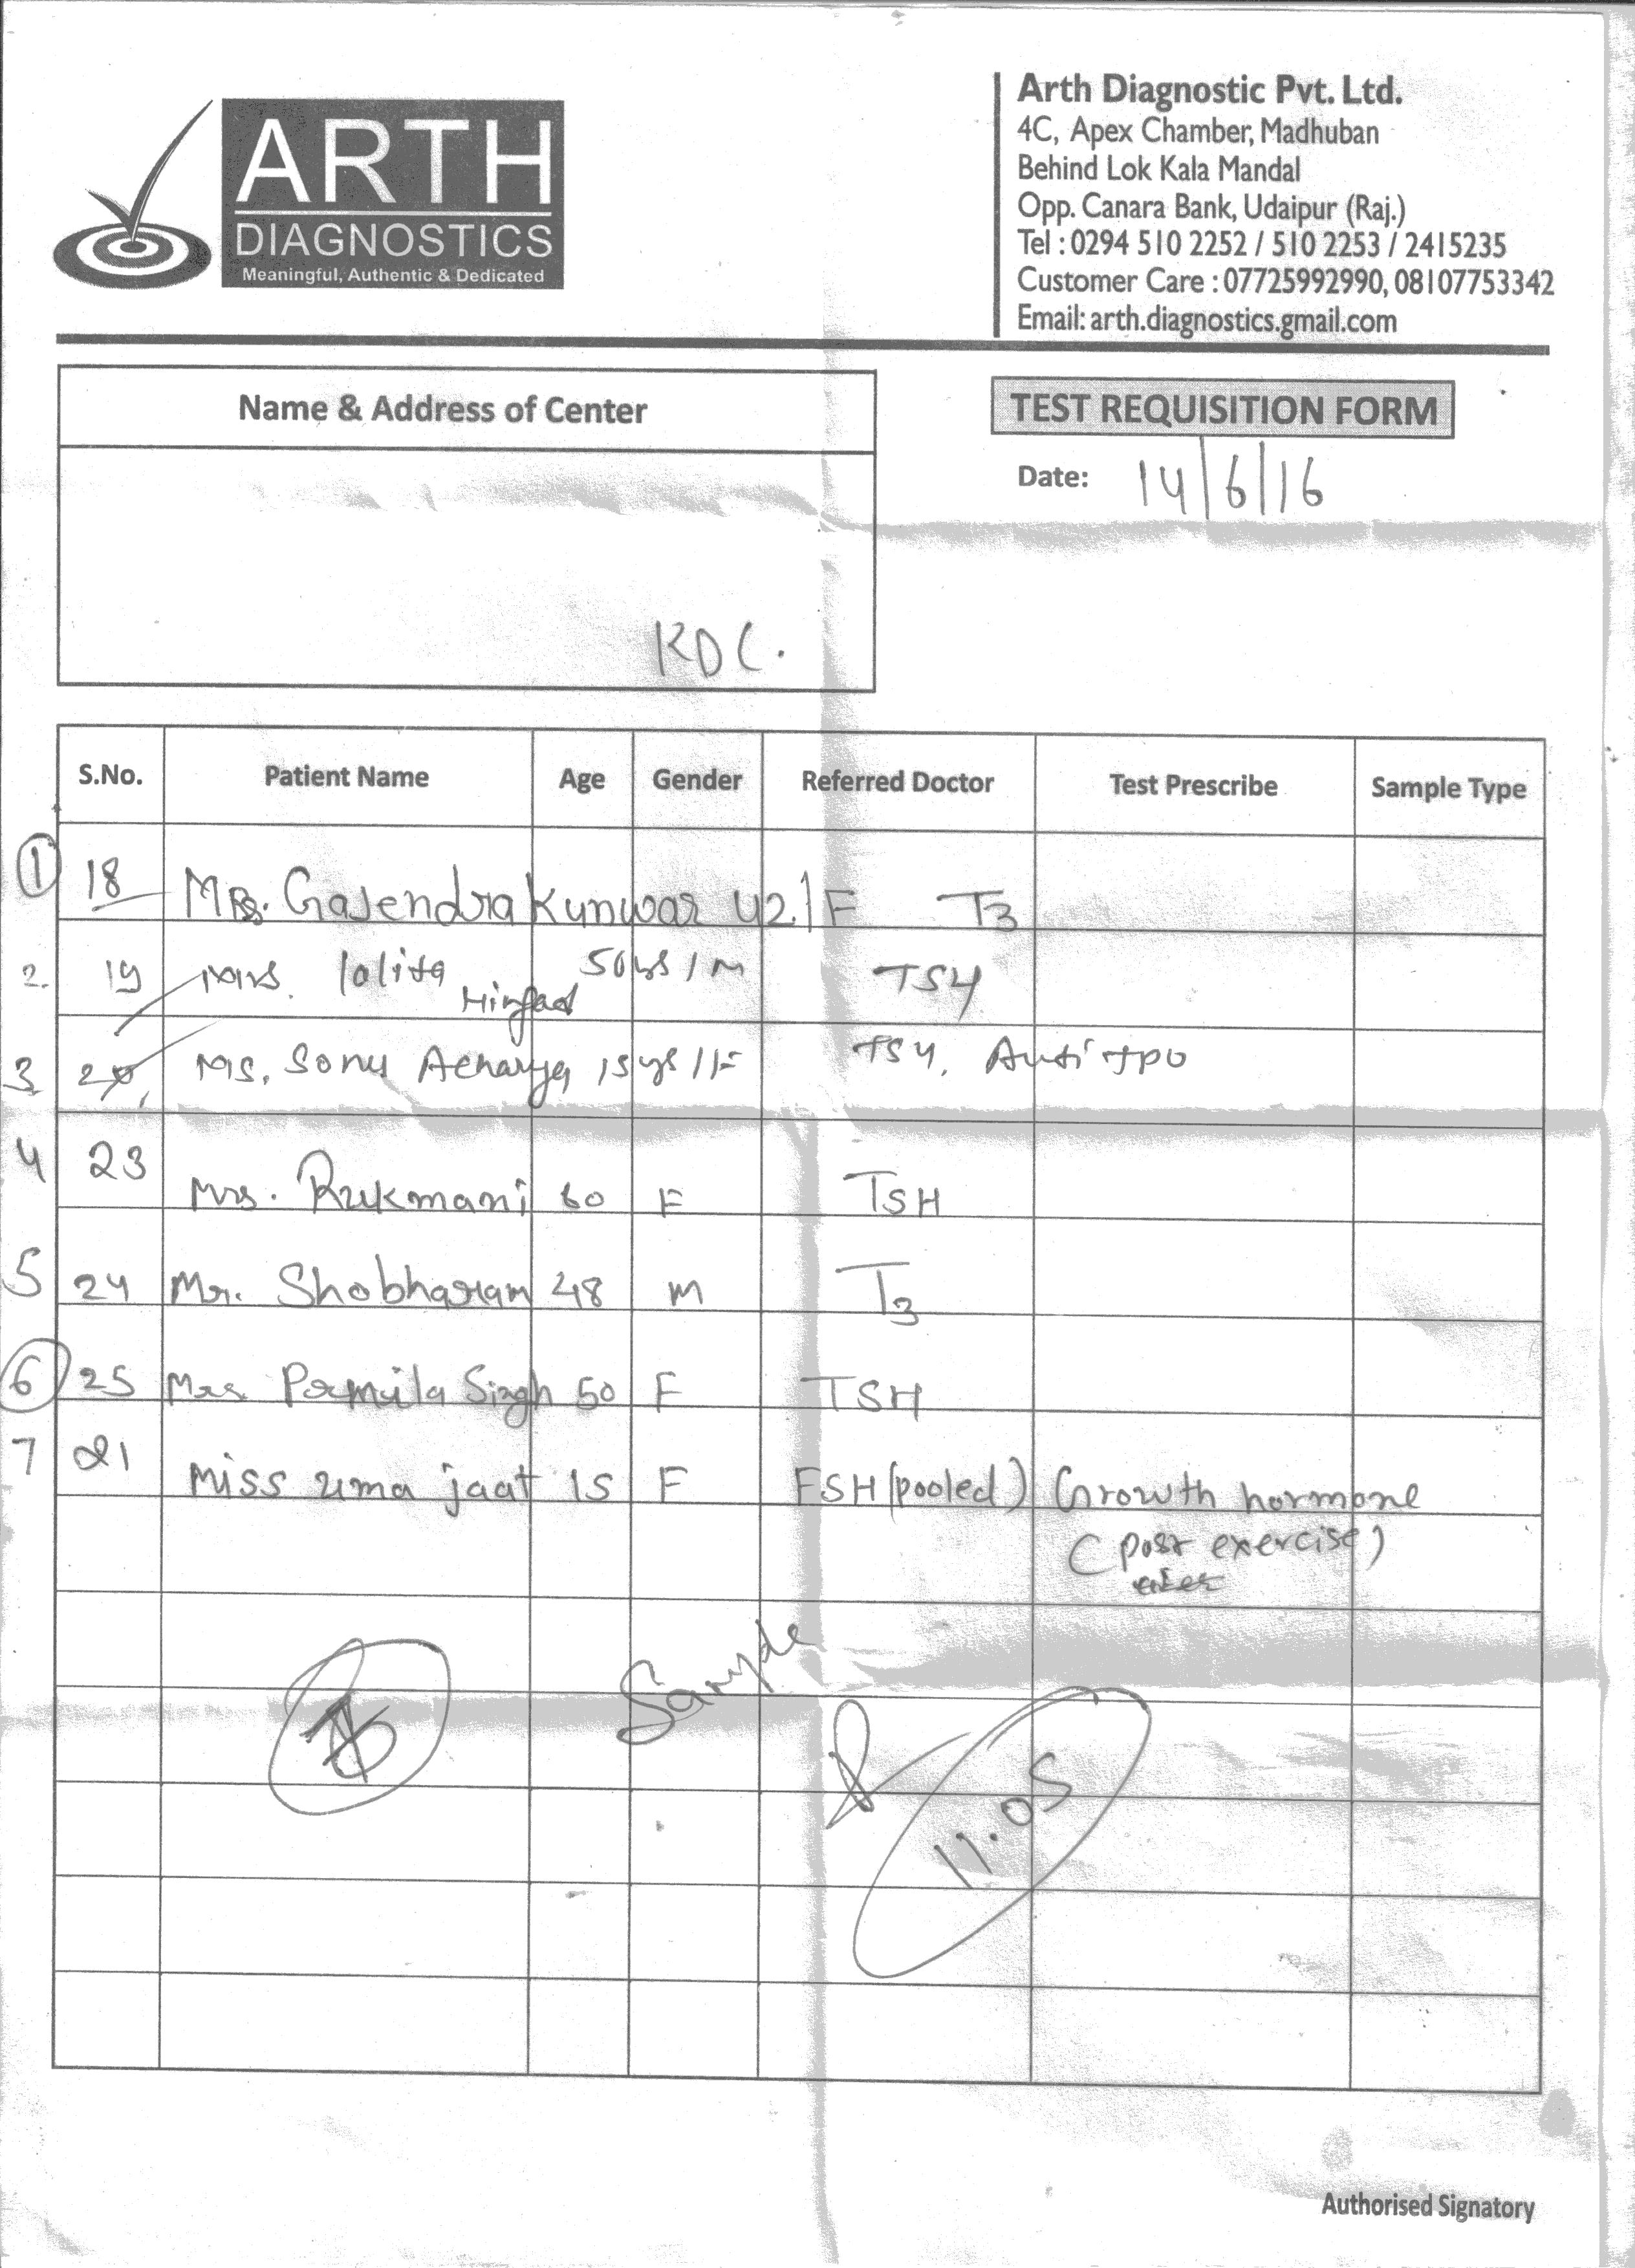 ARTH
DIAGNOSTICS
Meaningful, Authentic & Dedicated
Arth Diagnostic Pvt. Ltd.
4C, Apex Chamber, Madhuban
Behind Lok Kala Mandal
Opp. Canara Bank, Udaipur (Raj.)
Tel : 0294 510 2252 / 510 2253 / 2415235
Customer Care : 07725992990, 08107753342
Email: arth.diagnostics.gmail.com
Name & Address of Center
KDC.
TEST REQUISITION FORM
Date: 14/6/16
S.No. Patient Name Age Gender Referred Doctor Test Prescribe Sample Type
1 18 Mrs. Gajendra Kunwar 42 / F T3
2. 19 Mrs. lalita 50 / M TSH
3 Ms. Sonu Acharya 15 ys / F TSH, Anti TPO
4 23 Mrs. Rukmani 60 F TSH
5 24 Mr. Shobharam 48 M T3
6 25 Mrs Pormila Singh 50 F TSH
7 21 Miss uma jaat 15 F FSH (pooled) Growth hormone
(post exercise)
Sample
11.05
Authorised Signatory